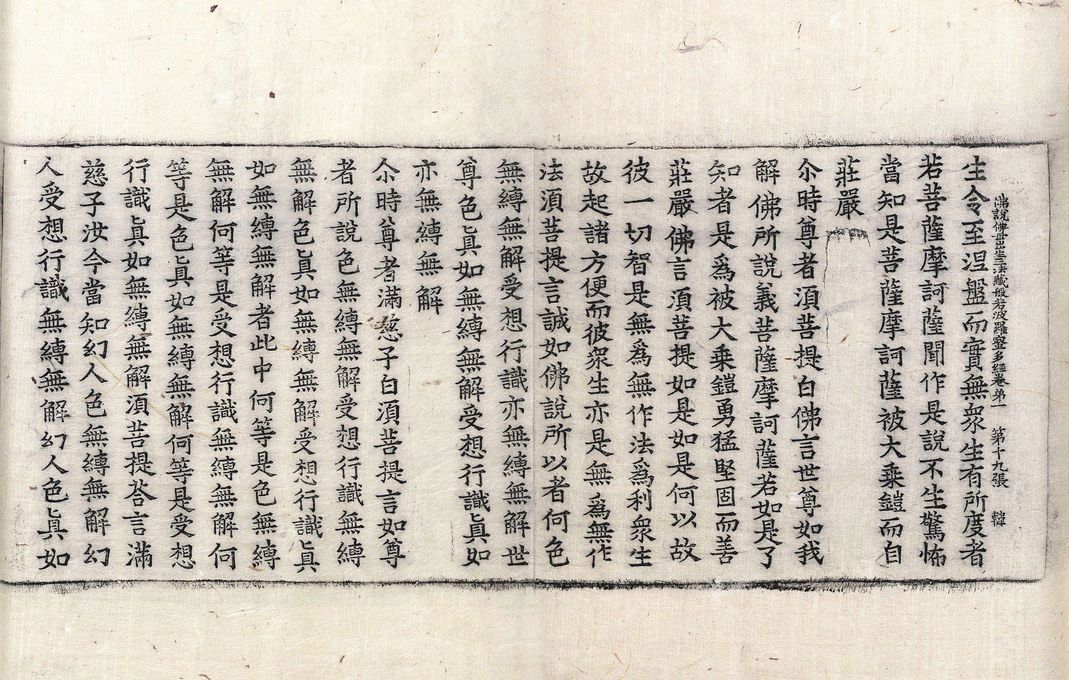 佛說佛母出生三法藏般若波羅蜜多經卷第一 第十九張 韓
生令至涅盤而實無衆生有所度者
若菩薩摩訶薩聞作是說不生驚怖
當知是菩薩摩訶薩被大乘鎧而自
莊嚴
尒時尊者須菩提白佛言世尊如我
解佛所說義菩薩摩訶薩若如是了
知者是爲被大乘鎧勇猛堅固而善
莊嚴佛言須菩提如是如是何以故
彼一切智是無爲無作法爲利衆生
故起諸方便而彼衆生亦是無爲無作
法須菩提言誠如佛說所以者何色
無縛無解受想行識亦無縛無解世
尊色真如無縛無解受想行識真如
亦無縛無解
尒時尊者滿慈子白須菩提言如尊
者所說色無縛無解受想行識無縛
無解色真如無縛無解受想行識真
如無縛無解者此中何等是色無縛
無解何等是受想行識無縛無解何
等是色真如無縛無解何等是受想
行識真如無縛無解須菩提荅言滿
慈子汝今當知幻人色無縛無解幻
人受想行識無縛無解幻人色真如